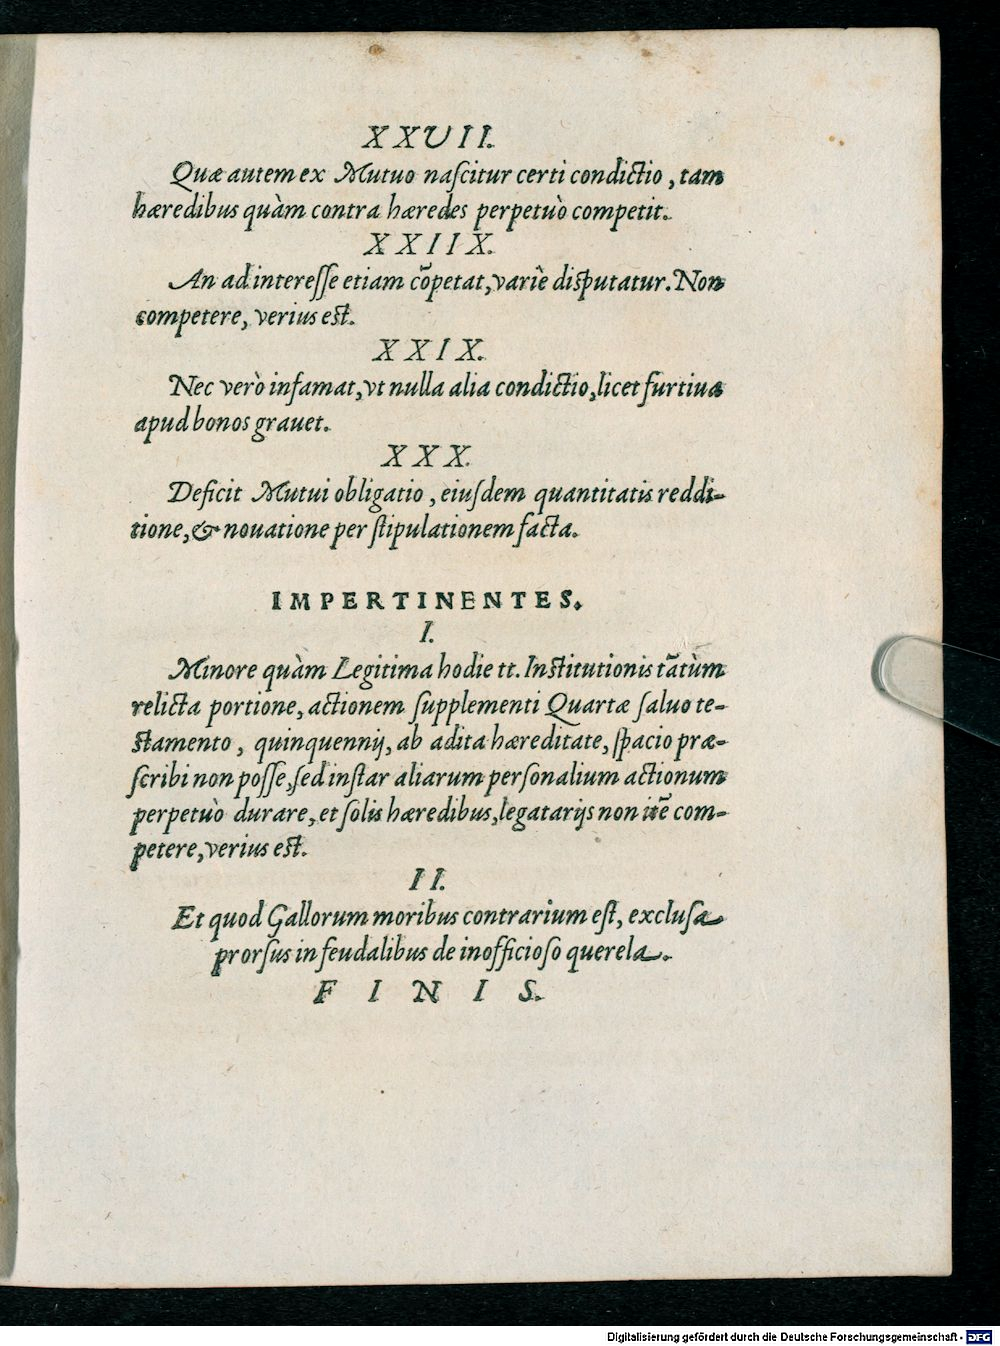 XXVII.
Quæ autem ex Mutuo nascitur certi condictio, tam
hæredibus quàm contra hæredes perpetuò competit.
XXIIX.
An ad interesse etiam cōpetat, variè disputatur. Non
competere, verius est.
XXIX.
Nec verò infamat, vt nulla alia condictio, licet furtiua
apud bonos grauet.
XXX.
Deficit Mutui obligatio, eiusdem quantitatis reddi-
tione, & nouatione per stipulationem facta.
IMPERTINENTES.
I.
Minore quàm Legitima hodie tt. Institutionis tātùm
relicta portione, actionem supplementi Quartæ saluo te-
stamento, quinquennij, ab adita hæreditate, spacio præ-
scribi non posse, sed instar aliarum personalium actionum
perpetuò durare, et solis hæredibus, legatarijs non itē com-
petere, verius est.
II.
Et quod Gallorum moribus contrarium est, exclusa
prorsus in feudalibus de inofficioso querela.
FINIS.
Digitalisierung gefördert durch die Deutsche Forschungsgemeinschaft - DFG